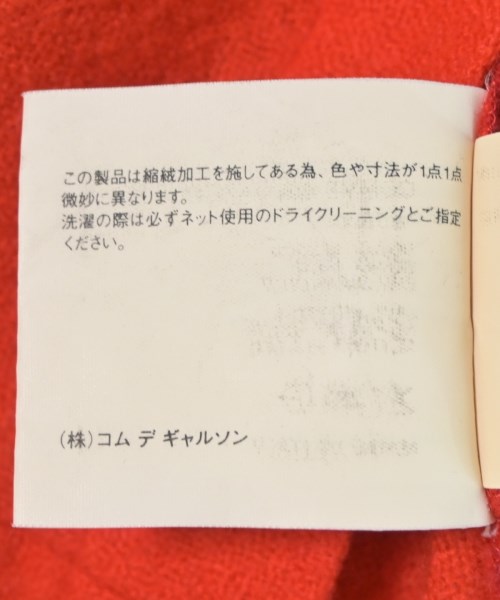 この製品は縮絨加工を施してある為、色や寸法が1点1点
微妙に異なります。
洗濯の際は必ずネット使用のドライクリーニングとご指定
ください。
(株)コム デ ギャルソン